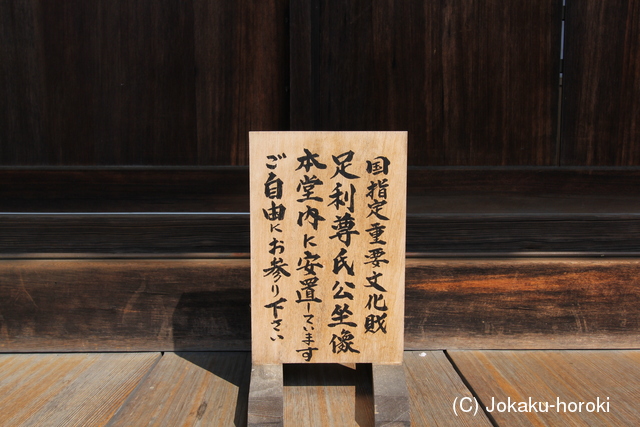 国指定重要文化財
足利尊氏公坐像
本堂内に安置しています
ご自由にお参り下さい
(C) Jokaku-horoki